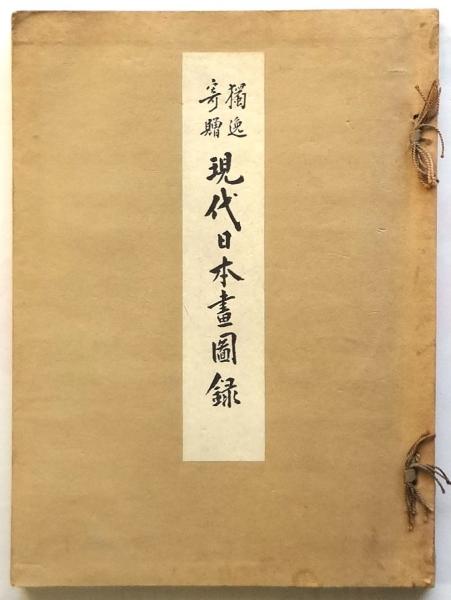 獨逸
寄贈
現代日本畫圖録